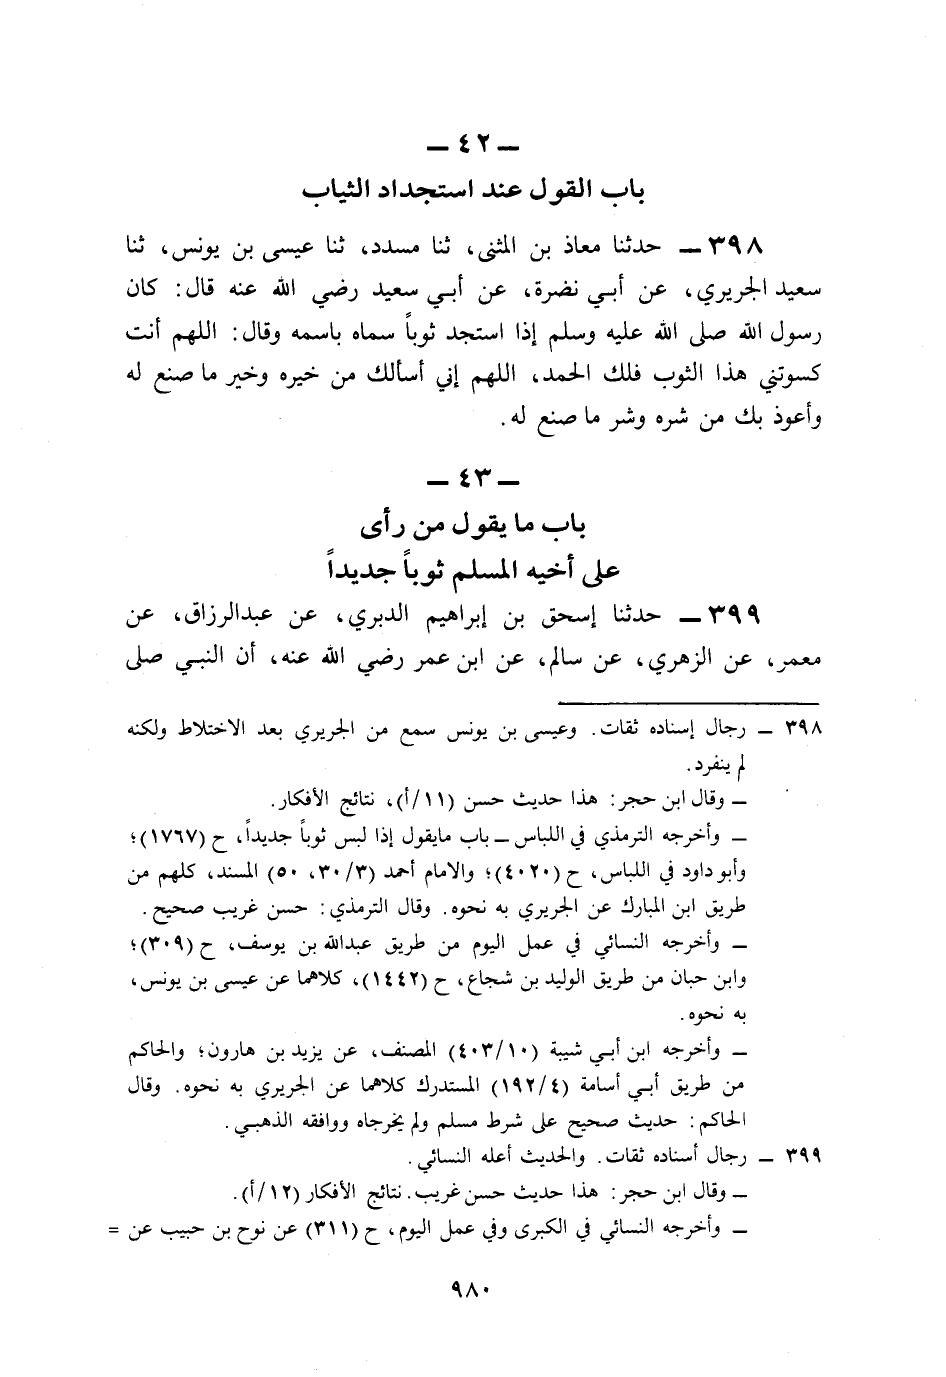 ــ ٤٢ ــ
باب القول عند استجداد الثياب
٣٩٨ ــ حدثنا معاذ بن المثنى، ثنا مسدد، ثنا عيسى بن يونس، ثنا
سعيد الجريري، عن أبي نضرة، عن أبي سعيد رضي الله عنه قال: كان
رسول الله صلى الله عليه وسلم إذا استجد ثوباً سماه باسمه وقال: اللهم أنت
كسوتني هذا الثوب فلك الحمد، اللهم إني أسألك من خيره وخير ما صنع له
وأعوذ بك من شره وشر ما صنع له.
ــ ٤٣ ــ
باب ما يقول من رأى
على أخيه المسلم ثوباً جديداً
٣٩٩ ــ حدثنا إسحق بن إبراهيم الدبري، عن عبدالرزاق، عن
معمر، عن الزهري، عن سالم، عن ابن عمر رضي الله عنه، أن النبي صلى
٣٩٨ ــ رجال إسناده ثقات. وعيسى بن يونس سمع من الجريري بعد الاختلاط ولكنه
لم ينفرد.
ــ وقال ابن حجر: هذا حديث حسن (١١/أ)، نتائج الأفكار.
ــ وأخرجه الترمذي في اللباس ــ باب مايقول إذا لبس ثوباً جديداً، ح (١٧٦٧)؛
وأبو داود في اللباس، ح (٤٠٢٠)؛ والامام أحمد (٣/ ٣٠، ٥٠) المسند، كلهم من
طريق ابن المبارك عن الجريري به نحوه. وقال الترمذي: حسن غريب صحيح.
ــ وأخرجه النسائي في عمل اليوم من طريق عبدالله بن يوسف، ح (٣٠٩)؛
وابن حبان من طريق الوليد بن شجاع، ح (١٤٤٢)، كلاهما عن عيسى بن يونس،
به نحوه.
ــ وأخرجه ابن أبي شيبة (١٠/ ٤٠٣) المصنف، عن يزيد بن هارون؛ والحاكم
من طريق أبي أسامة (٤/ ١٩٢) المستدرك كلاهما عن الجريري به نحوه. وقال
الحاكم: حديث صحيح على شرط مسلم ولم يخرجاه ووافقه الذهبي.
٣٩٩ ــ رجال أسناده ثقات. والحديث أعله النسائي.
ــ وقال ابن حجر: هذا حديث حسن غريب. نتائج الأفكار (١٢/أ).
ــ وأخرجه النسائي في الكبرى وفي عمل اليوم، ح (٣١١) عن نوح بن حبيب عن =
٩٨٠